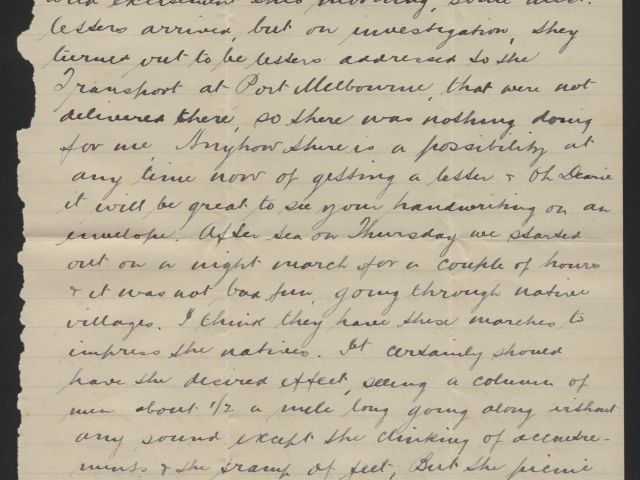 and excitement this morning, some
letters arrived, but on investigation, they
turned out to be letters addressed to the
Transport at Port Melbourne, that were not
delivered there, so there was nothing doing
for me, Anyhow there is a possibility at
any time now of getting a letter & Oh Dearie
it will be great to see your handwriting on an
envelope. After tea on Thursday we started
out on a night march for a couple of hours
& it was not bad fun, going through native
villages. I think they have these marches to
impress the natives. It certainly should
have the desired effect, seeing a column of
men about 1/2 a mile long going along without
any sound except the clinking of accoutre-
ments & the tramp of feet, But the picnic